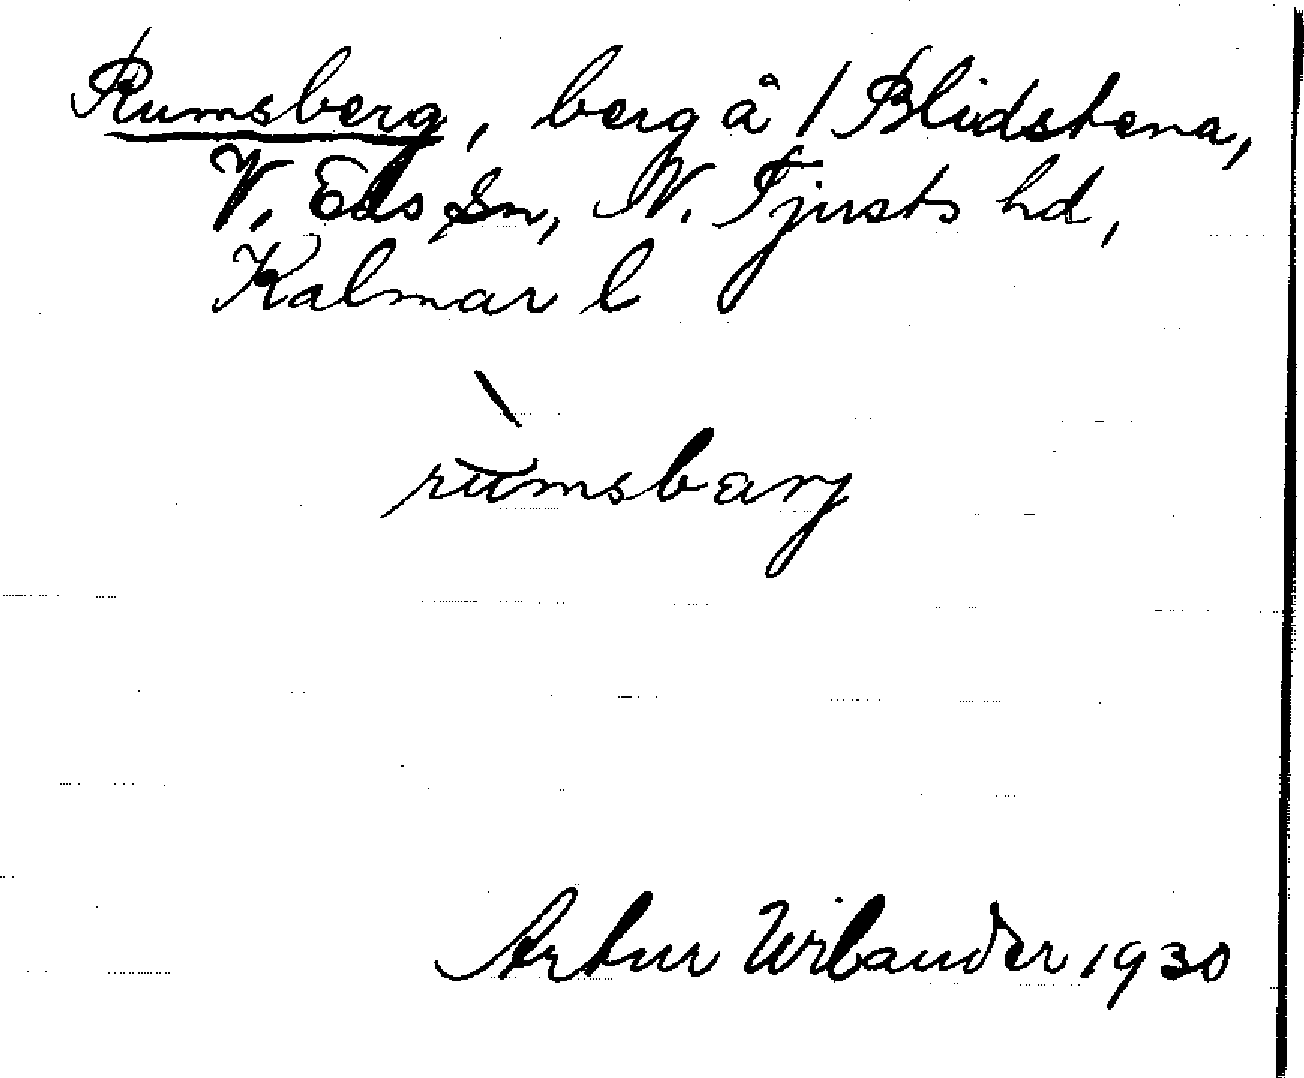 Rumsberg, berg å / Blidstena,
V. Eds Sn, N. Tjusts hd,
Kalmar l
\
rumsbarj
Artur Wilander 1930